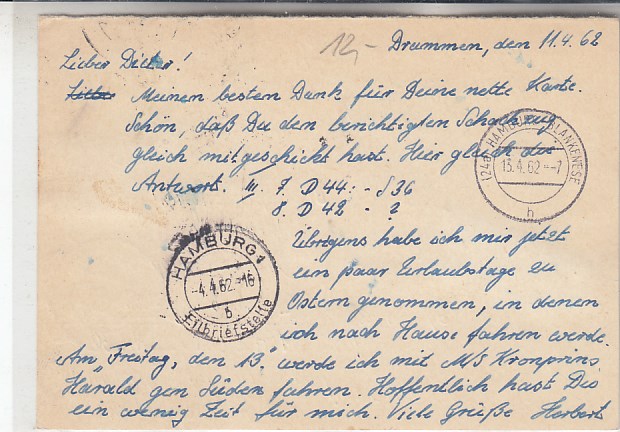 12,-
Drammen, den 11.4.62
Lieber Dieter!
Lieber Meinen besten Dank für Deine nette Karte.
Schön, daß Du den berichtigten Schachzug
gleich mitgeschickt hast. Hier gleich die
Antwort. III. 7. D44: - S36
8. D42 - ?
(24a) HAMBURG-BLANKENESE
13.4.62 - -7
h
Übrigens habe ich mir jetzt
ein paar Urlaubstage zu
Ostern genommen, in denen
ich nach Hause fahren werde.
HAMBURG 1
-4.4.62 - -16
b
Eilbriefstelle
Am Freitag, den 13., werde ich mit M/S Kronprins
Harald gen Süden fahren. Hoffentlich hast Du
ein wenig Zeit für mich. Viele Grüße Herbert